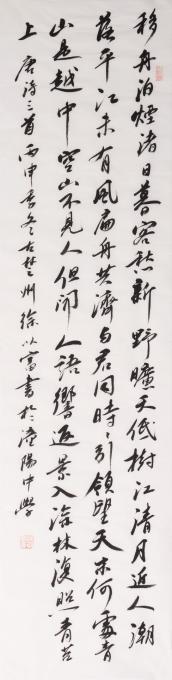 移舟泊煙渚日暮客愁新野曠天低樹江清月近人潮
落平江未有風扁舟共濟與君同時時引領望天末何處青
山是越中空山不見人但聞人語響返景入深林復照青苔
上唐詩三首丙申春冬古楚州徐以富書於淮陽中學